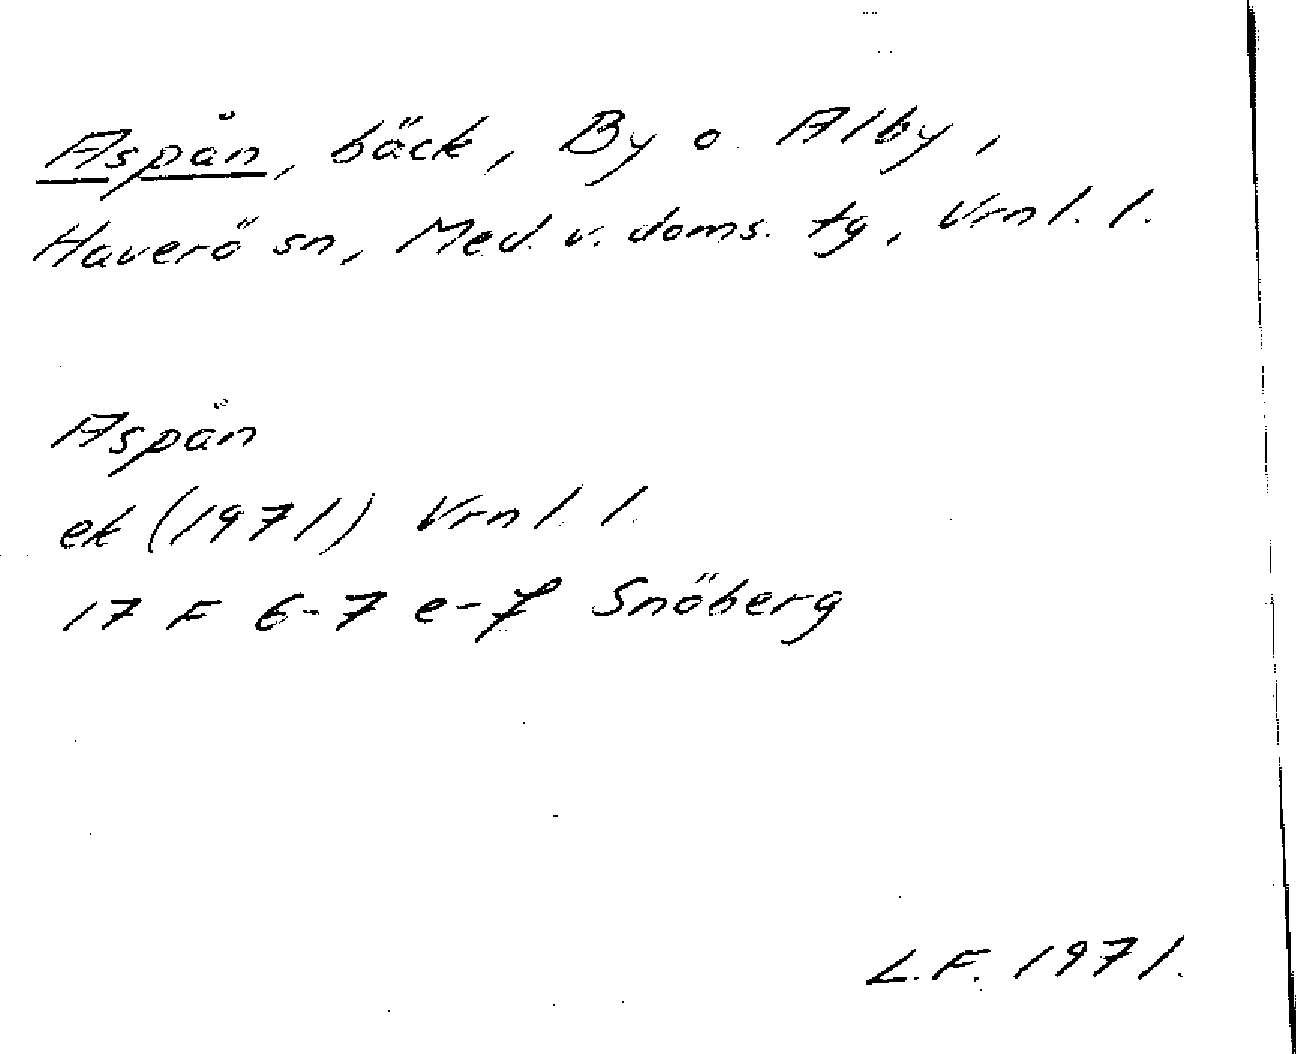 Aspån, bäck, By o. Alby,
Haverö sn, Med. v. doms. tg, Vrnl. l.
Aspån
ek (1971) Vrnl. l.
17 F 6-7 e-f Snöberg
L.F. 1971.